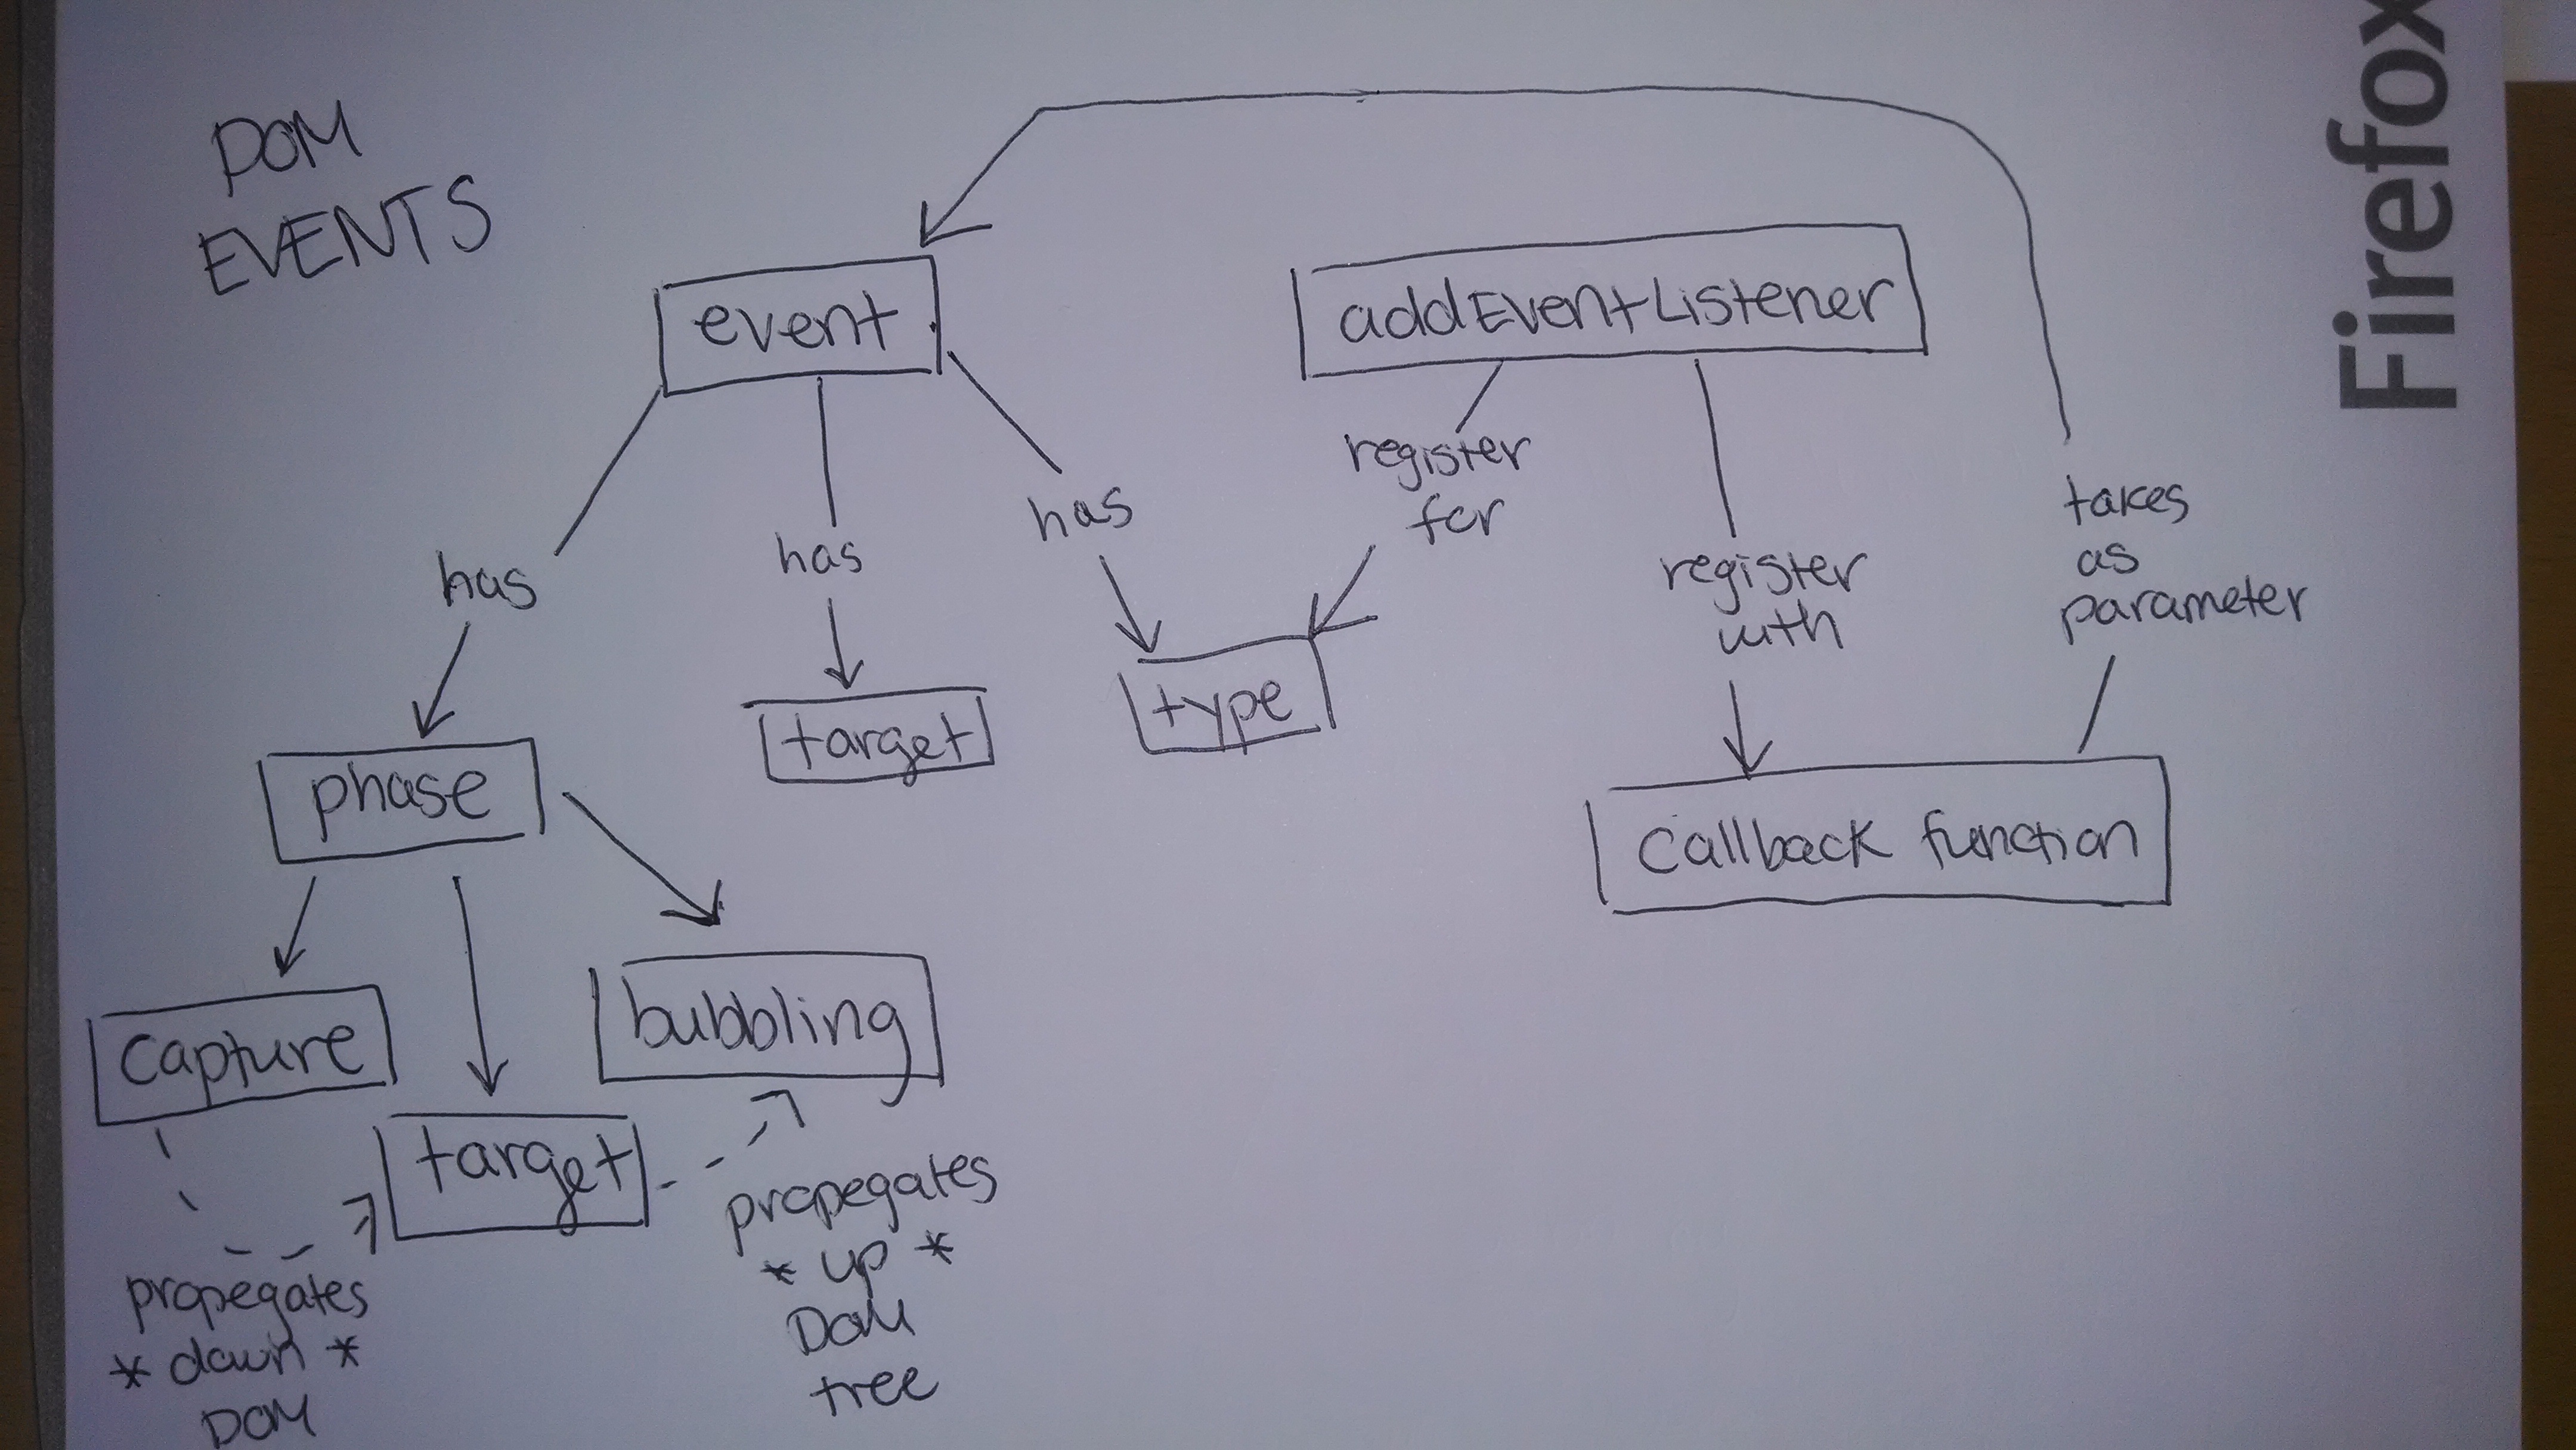 DOM
EVENTS
Firefox
event
addEventListener
has
has
has
register
for
register
with
takes
as
parameter
phase
target
type
callback function
capture
target
bubbling
propegates
* down *
DOM
propegates
* up *
DOM
tree